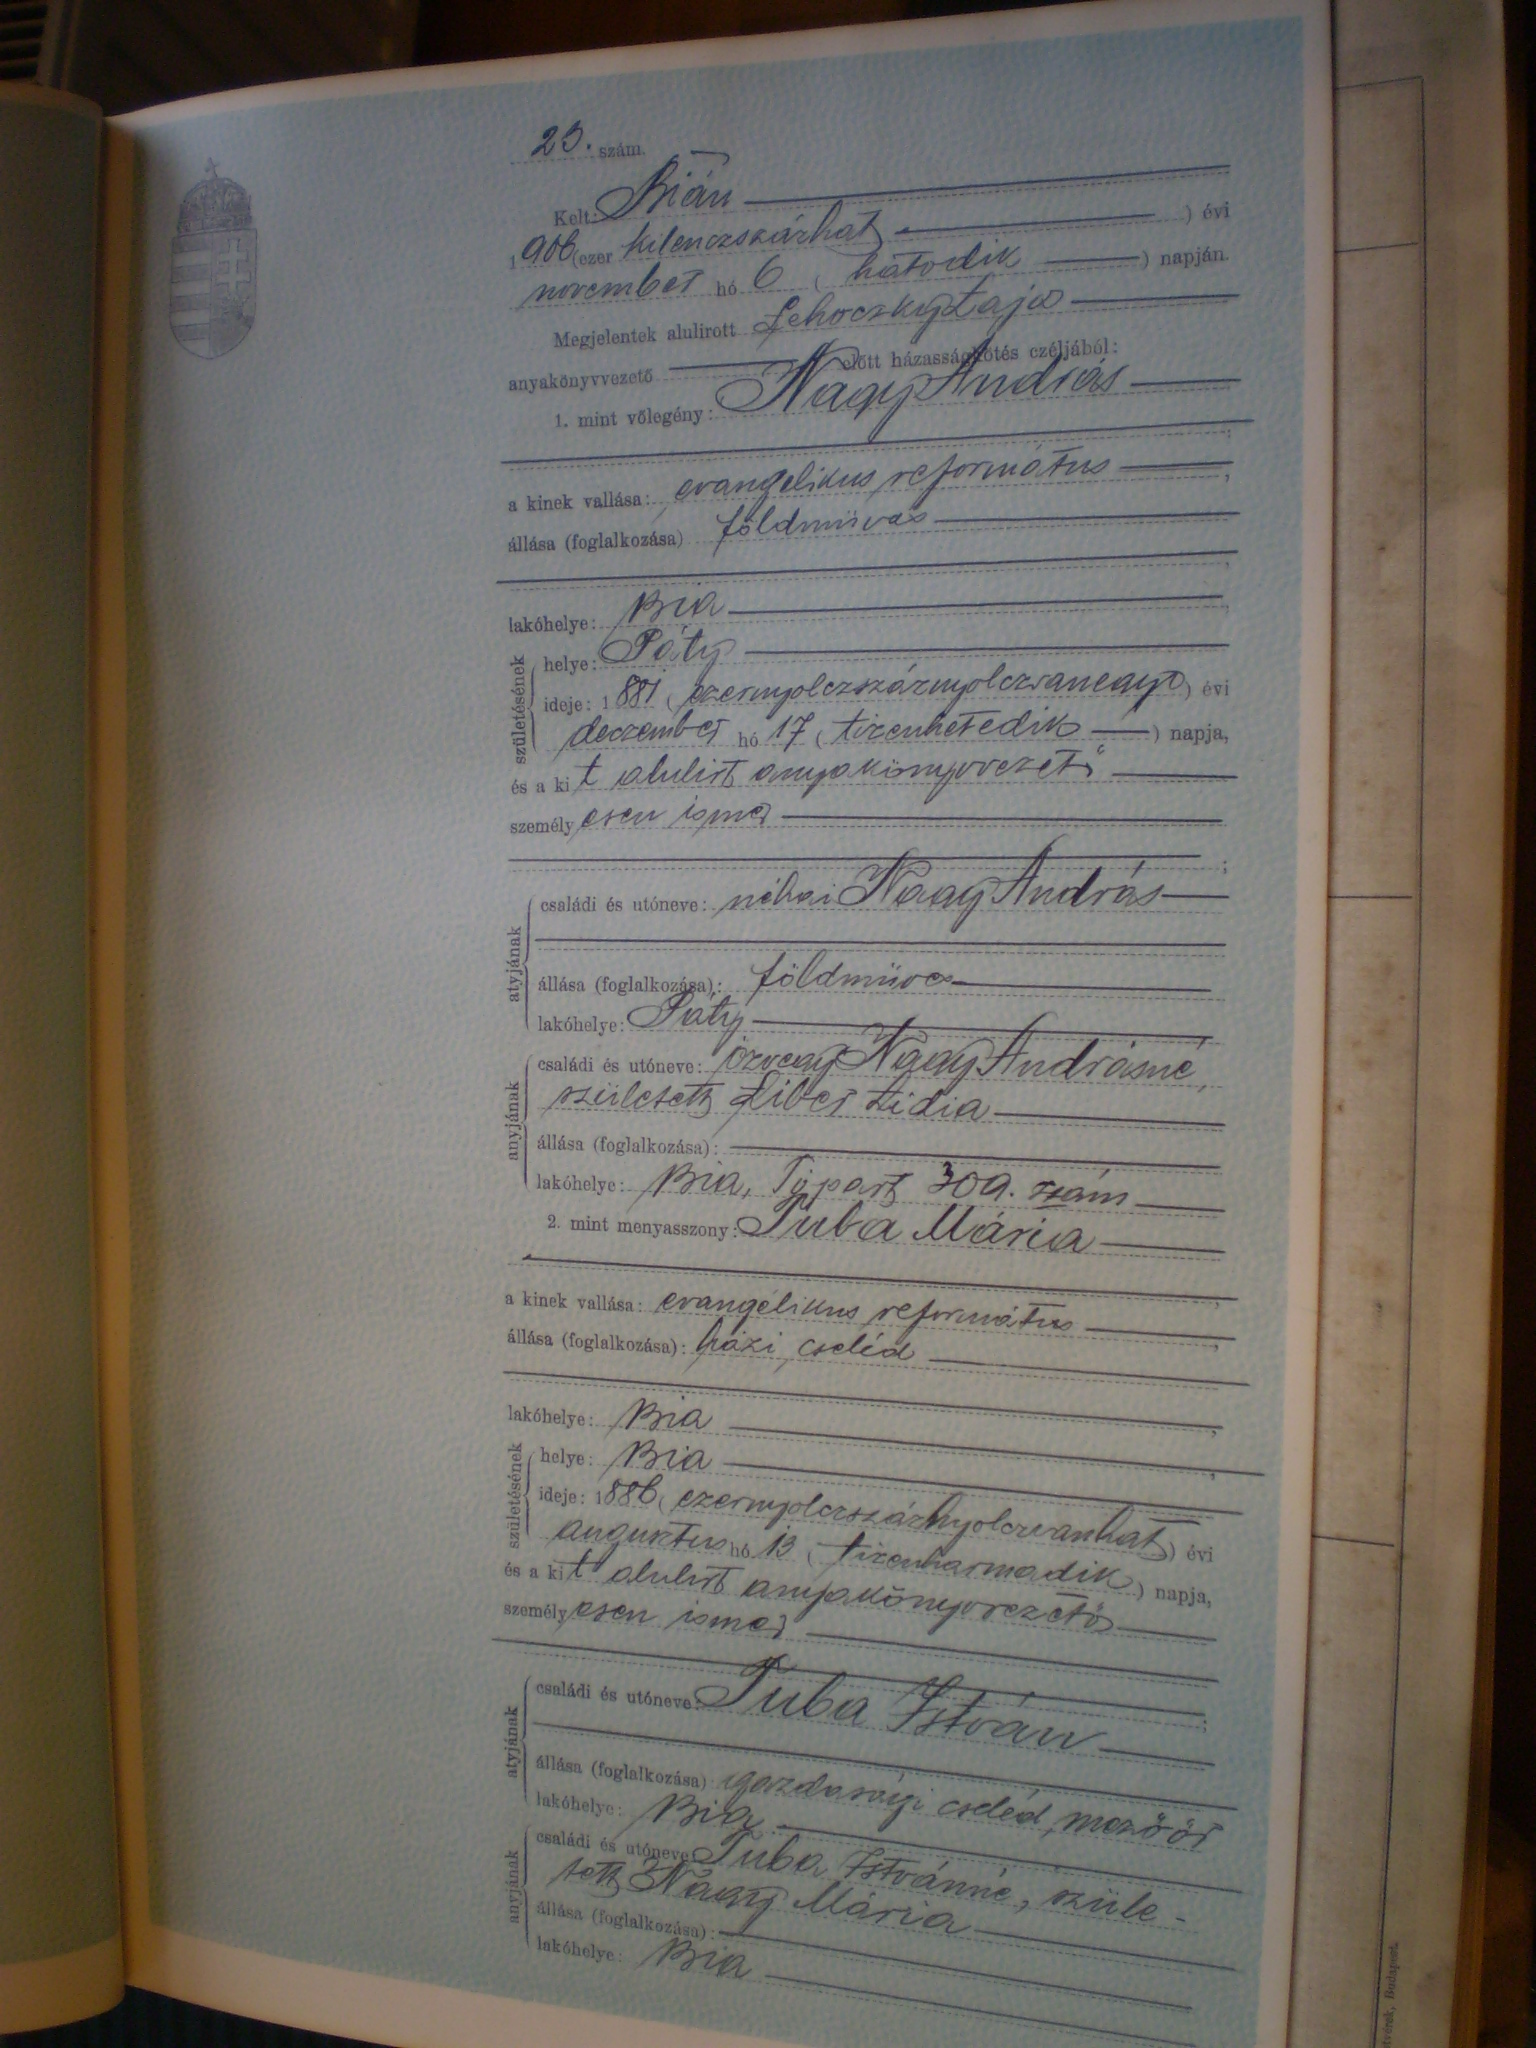 23. szám.
Kelt: Bián
1906 (ezer kilenczszázhat) évi
november hó 6 (hatodik) napján.
Megjelentek alulirott Lehoczky Lajos
anyakönyvvezető előtt házasságkötés czéljából:
1. mint vőlegény: Nagy András
a kinek vallása: evangelikus református
állása (foglalkozása) földmüves
lakóhelye: Bia
születésének
helye: Páty
ideje: 1881 (ezernyolczszáznyolczvanegy) évi
deczember hó 17 (tizenhetedik) napja,
és a kit alulirt anyakönyvvezető
személyesen ismer
atyjának
családi és utóneve: néhai Nagy András
állása (foglalkozása): földmüves
lakóhelye: Páty
anyjának
családi és utóneve: özvegy Nagy Andrásné,
született Liber Lidia
állása (foglalkozása):
lakóhelye: Bia, 309. szám
2. mint menyasszony: Tuba Mária
a kinek vallása: evangélikus református
állása (foglalkozása): házi cseléd
lakóhelye: Bia
születésének
helye: Bia
ideje: 1886 (ezernyolczszáznyolczvanhat) évi
augusztus hó 13 (tizenharmadik) napja,
és a kit alulirt anyakönyvvezető
személyesen ismer
atyjának
családi és utóneve: Tuba István
állása (foglalkozása) gazdasági cseléd, mezőőr
lakóhelye: Bia
anyjának
családi és utóneve: Tuba Istvánné, szüle-
tett Nagy Mária
állása (foglalkozása):
lakóhelye: Bia
Budapest.